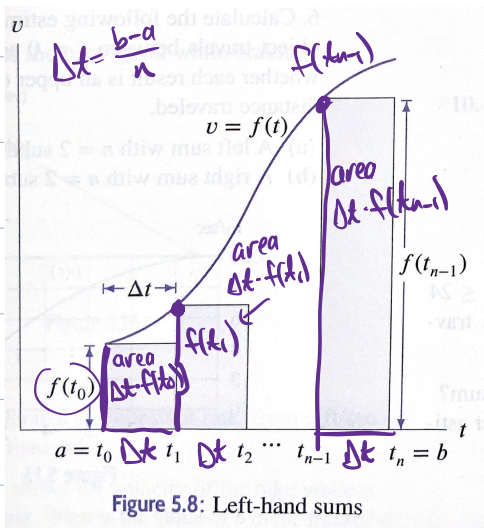 v
Δt = b-a / n
f(tn-1)
v = f(t)
area
Δt·f(tn-1)
area
Δt·f(t1)
Δt
f(tn−1)
f(t1)
area
Δt·f(t0)
f(t0)
t
a = t0 Δt t1 Δt t2 ··· tn−1 Δt tn = b
Figure 5.8: Left-hand sums